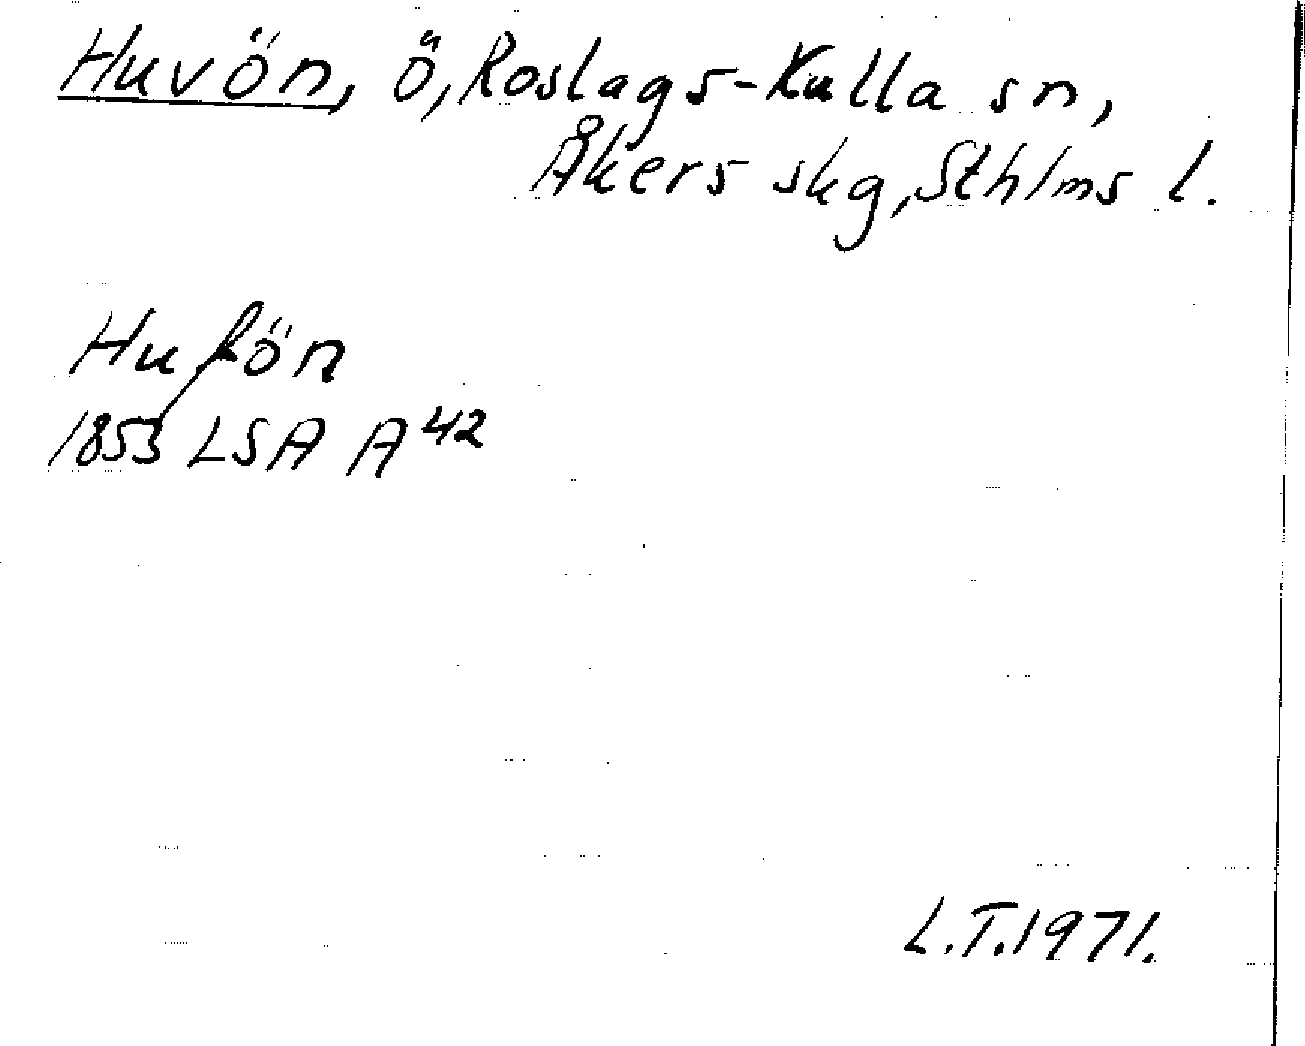 Huvön, ö, Roslags-Kulla sn,
Åkers skg, Sthlms l.
Hufön
1853 LSA A 42
L.T. 1971.